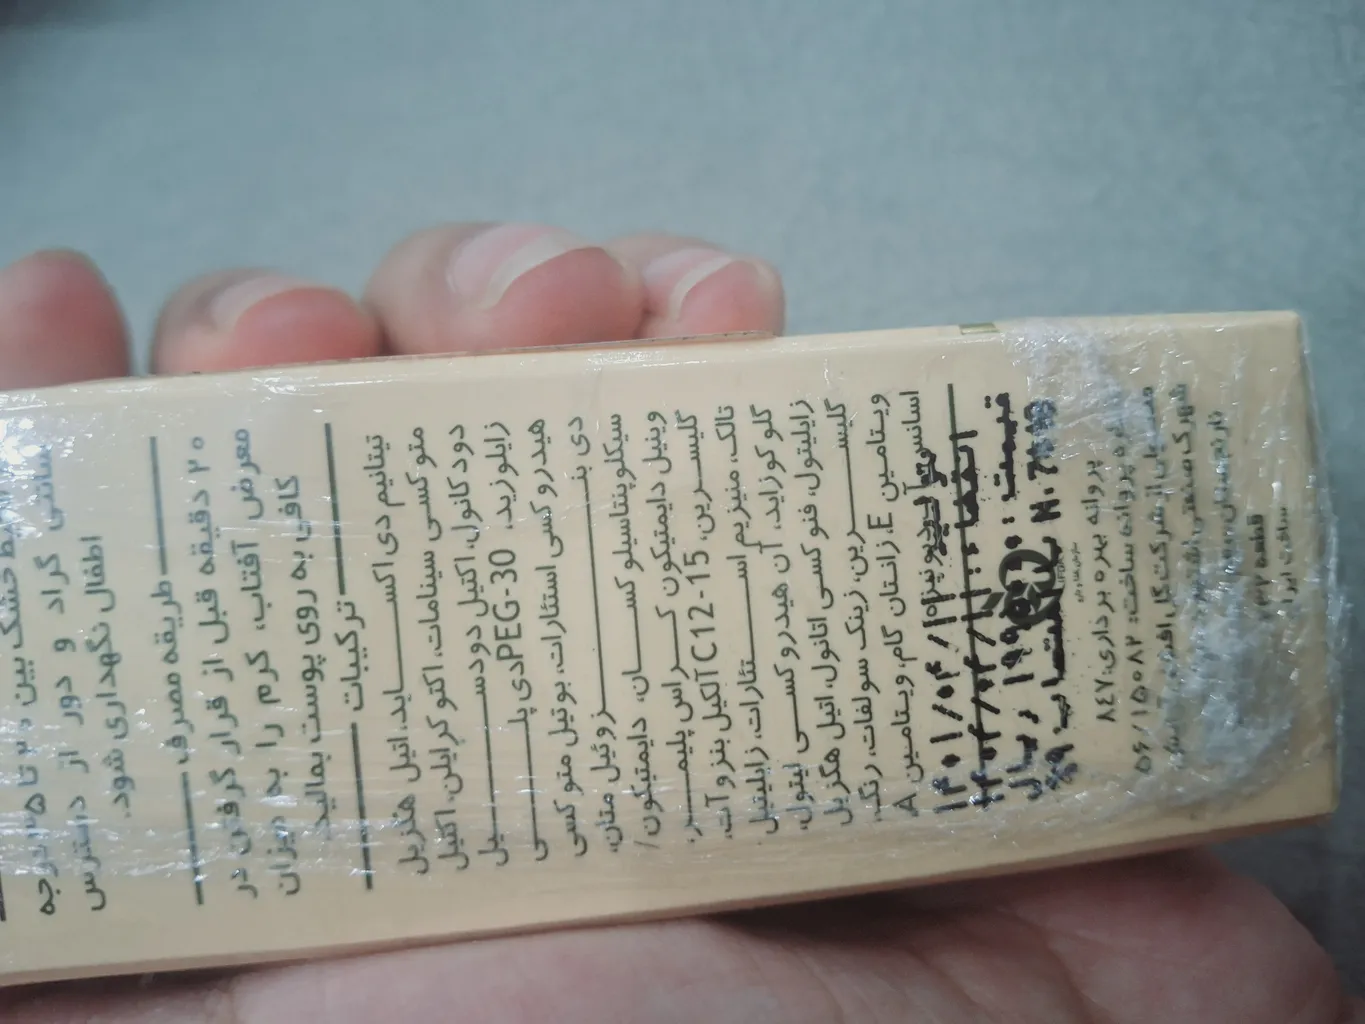 سانتی گراد و دور از دسترس
اطفال نگهداری شود.
طریقه مصرف
۲۰ دقیقه قبل از قرار گرفتن در
معرض آفتاب، کرم را به میزان
کافی به روی پوست بمالید.
ترکیبات
تیتانیم دی اکساید، اتیل هگزیل
متوکسی سینامات، اکتوکرایلن، اکتیل
دودکانول، اکتیل دودسیل
زایلوزید، PEG-30 دی پلی
هیدروکسی استئارات، بوتیل متوکسی
دی بنزوئیل متان،
سیکلوپنتاسیلوکسان، دایمتیکون/
وینیل دایمتیکون کراس پلیمر،
گلیسرین، C12-15 آلکیل بنزوآت،
تالک، منیزیم استئارات، زایلیتیل
گلوکوزاید، آن هیدروکسی لیتول،
زایلیتول، فنوکسی اتانول، اتیل هگزیل
گلیسرین، زینک سولفات، رنگ،
ویتامین E، زانتان گام، ویتامین A
اسانس، آب دیونیزه
تولید: ۱۴۰۱/۰۴/
انقضا: ۱۴۰۴/۰۴/
قیمت: ریال
پروانه بهره برداری: ۸۴۷
شماره پروانه ساخت: ۵۶/۱۵۰۸۲